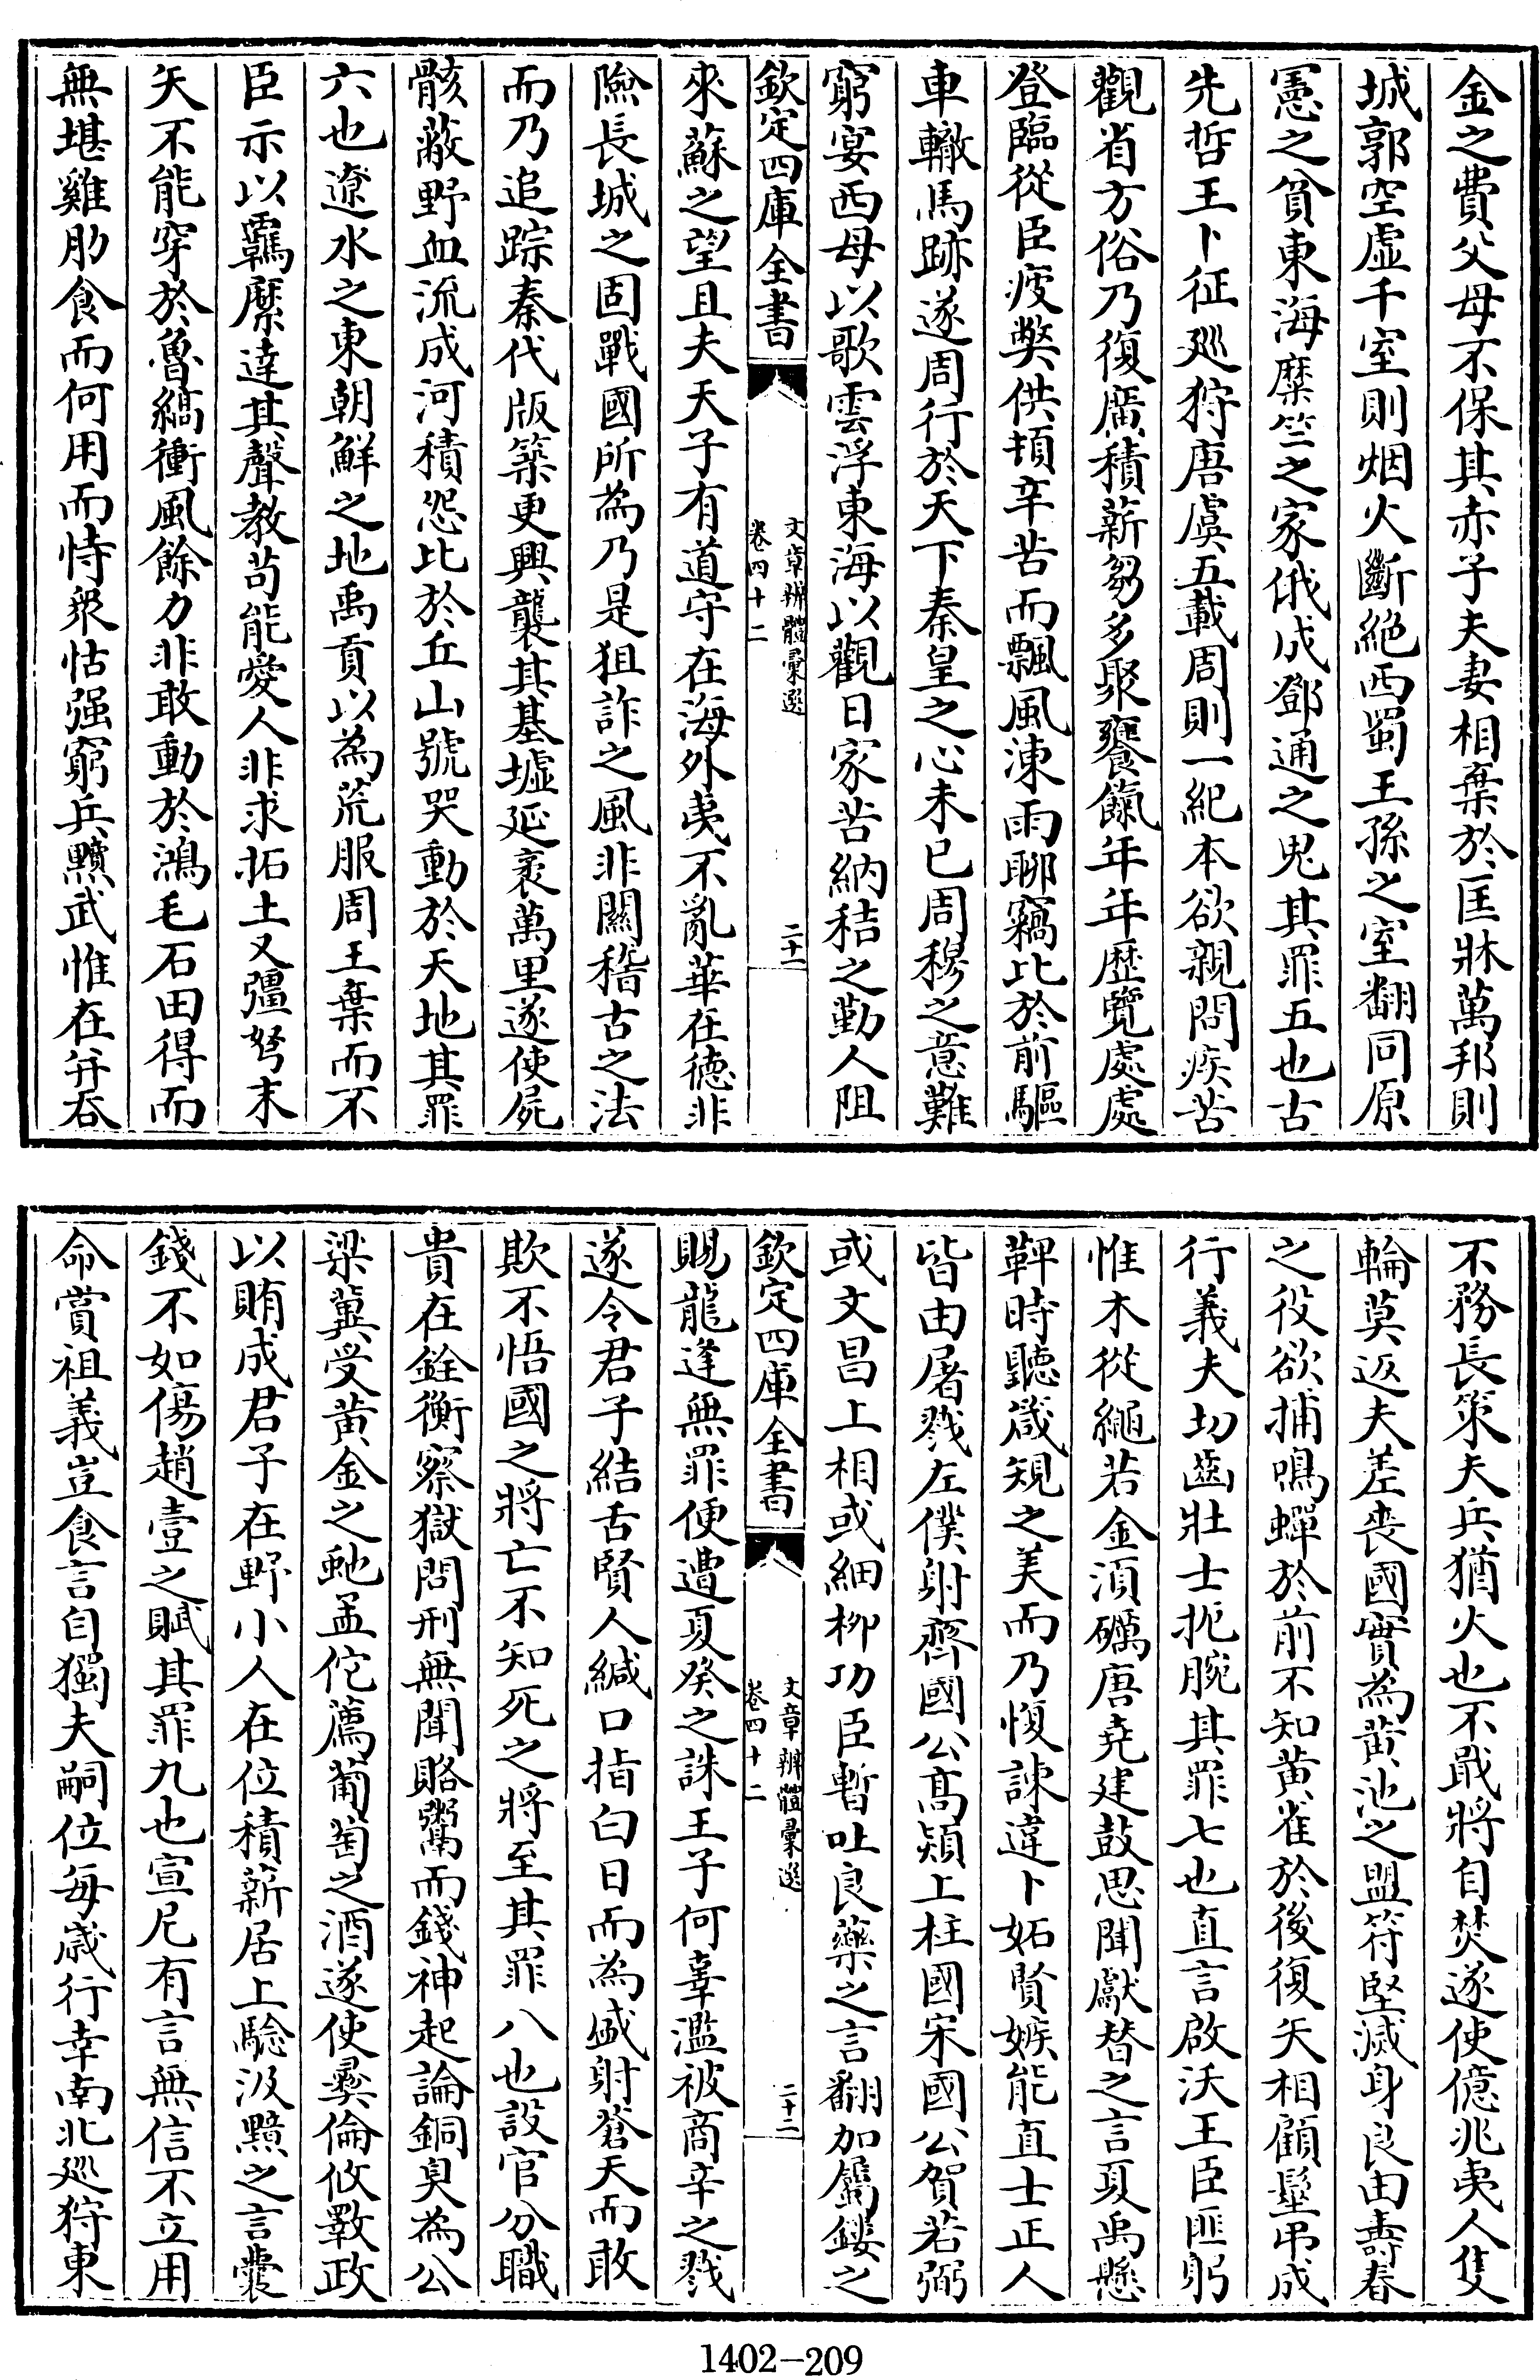 金之費父母不保其赤子夫妻相棄於匡牀萬邦則
城郭空虛千室則烟火斷絕西蜀王孫之室翻同原
憲之貧東海糜竺之家俄成鄧通之鬼其罪五也古
先哲王卜征廵狩唐虞五載周則一紀本欲親問疾苦
觀省方俗乃復廣積薪芻多聚饔餼年年歴覽處處
登臨從臣疲弊供頓辛苦而飄風凍雨聊竊比於前驅
車轍馬跡遂周行於天下秦皇之心未已周穆之意難
窮宴西母以歌雲浮東海以觀日家苦納秸之勤人阻
欽定四庫全書
文章辨體彚選
卷四十二
二十一
來蘇之望且夫天子有道守在海外夷不亂華在德非
險長城之固戰國所為乃是狙詐之風非關稽古之法
而乃追踪秦代版築更興襲其基墟延袤萬里遂使屍
骸蔽野血流成河積怨比於丘山號哭動於天地其罪
六也遼水之東朝鮮之地禹貢以為荒服周王棄而不
臣示以羈縻達其聲教苟能愛人非求拓土又彊弩末
矢不能穿於魯縞衝風餘力非敢動於鴻毛石田得而
無堪雞肋食而何用而恃衆怙强窮兵黷武惟在并吞
不務長策夫兵猶火也不戢將自焚遂使億兆夷人隻
輪莫返夫差喪國實為黄池之盟符堅滅身良由壽春
之役欲捕鳴蟬於前不知黄雀於後復矢相顧髽弔成
行義夫切齒壯士扼腕其罪七也直言啟沃王臣匪躬
惟木從繩若金須礪唐堯建鼓思聞獻替之言夏禹懸
鞞時聽箴規之美而乃愎諫違卜妬賢嫉能直士正人
皆由屠戮左僕射齊國公髙熲上柱國宋國公賀若弼
或文昌上相或細栁功臣暫吐良藥之言翻加屬鏤之
欽定四庫全書
文章辨體彚選
卷四十二
二十二
賜龍逢無罪便遭夏癸之誅王子何辜濫被商辛之戮
遂令君子結舌賢人緘口指白日而為盛射蒼天而敢
欺不悟國之將亡不知死之將至其罪八也設官分職
貴在銓衡察獄問刑無聞賂鬻而錢神起論銅臭為公
梁冀受黄金之虵孟佗薦葡萄之酒遂使彞倫攸斁政
以賄成君子在野小人在位積薪居上騐汲黯之言囊
錢不如傷趙壹之賦其罪九也宣尼有言無信不立用
命賞祖義豈食言自獨夫嗣位每歲行幸南北廵狩東
1402-209